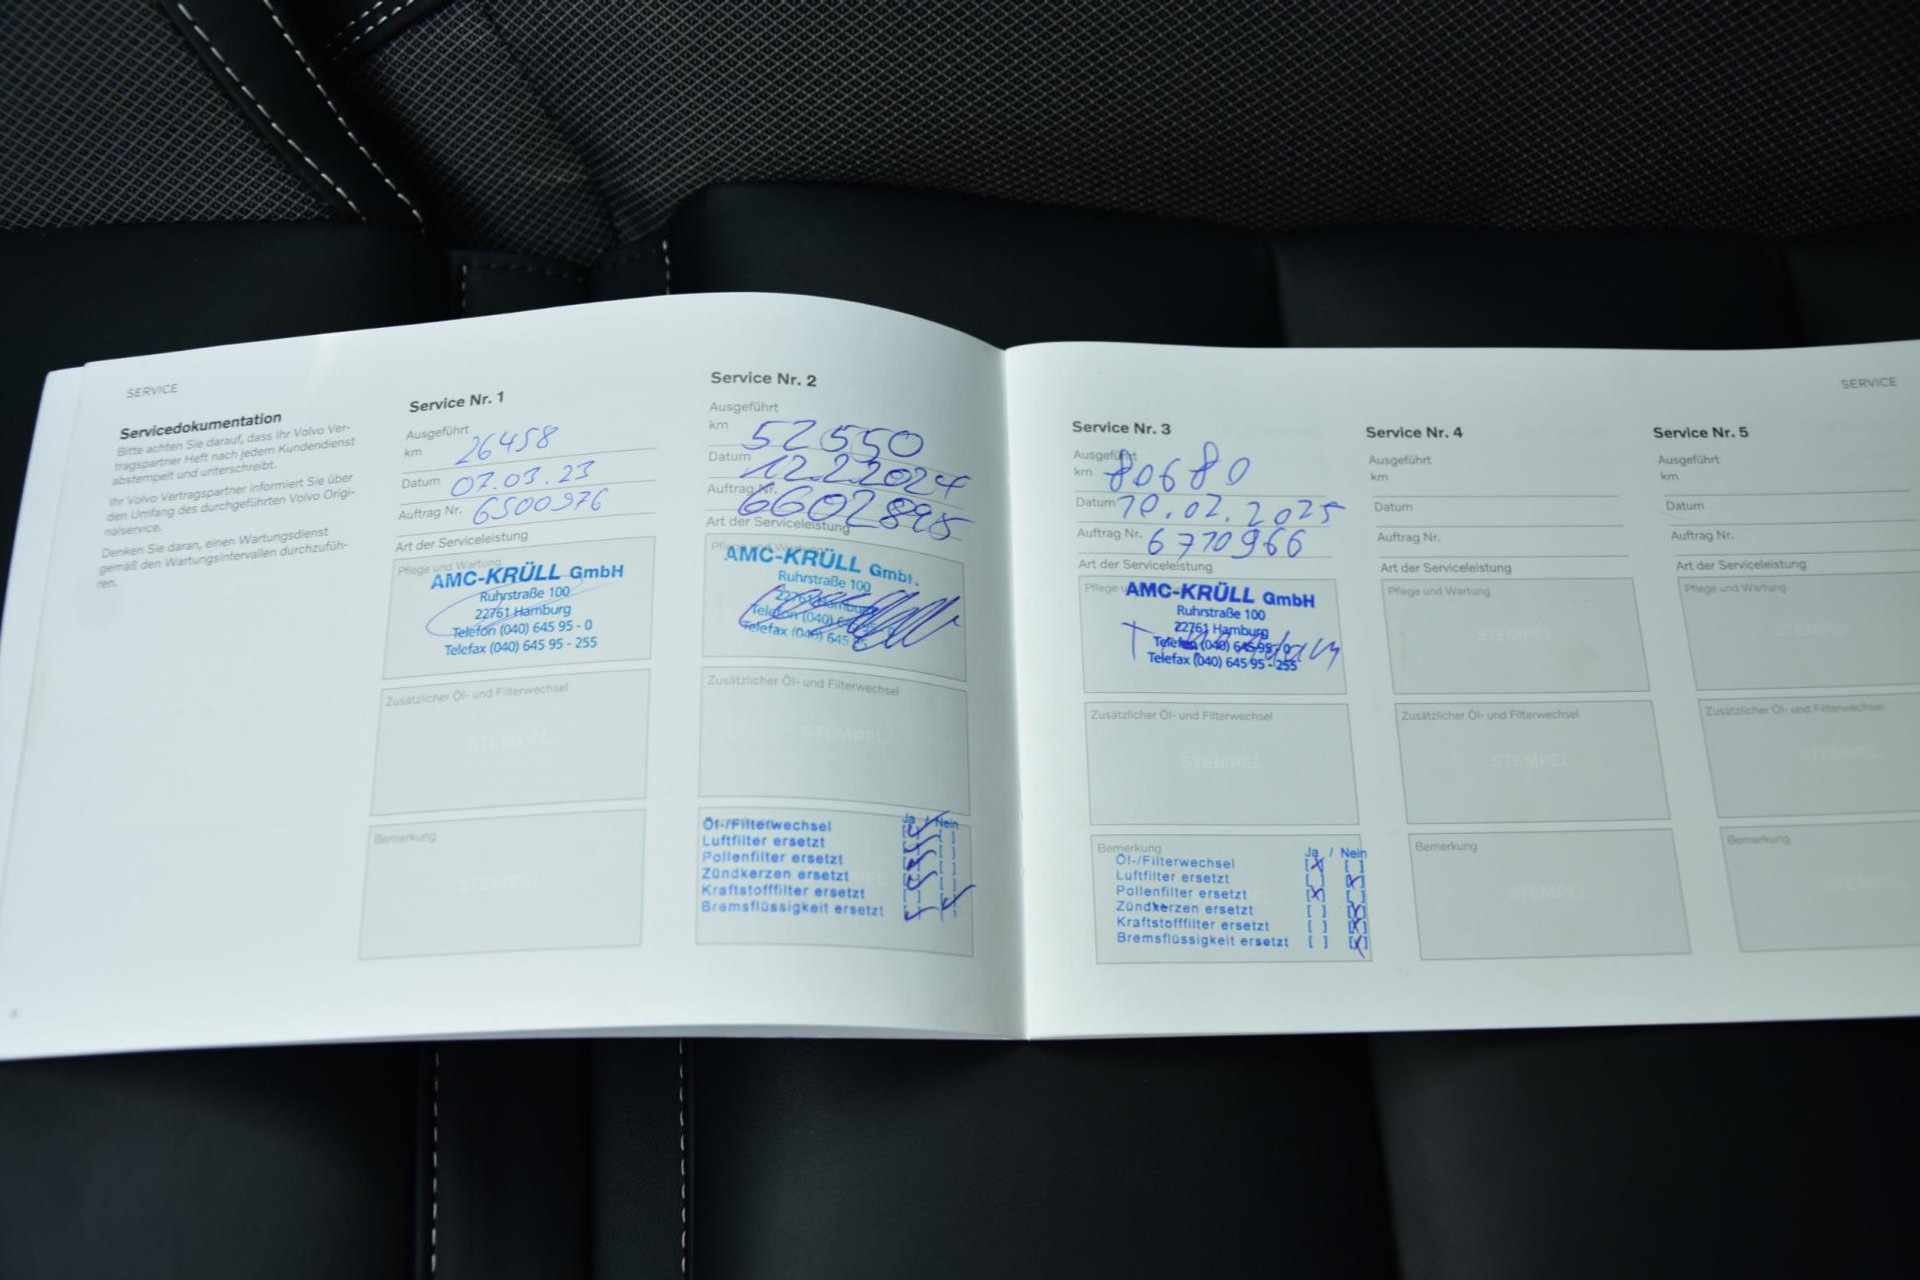 SERVICE
Servicedokumentation
Bitte achten Sie darauf, dass Ihr Volvo Ver-
tragspartner Heft nach jedem Kundendienst
abstempelt und unterschreibt.
Ihr Volvo Vertragspartner informiert Sie über
den Umfang des durchgeführten Volvo Origi-
nalservice.
Denken Sie daran, einen Wartungsdienst
gemäß den Wartungsintervallen durchzufüh-
ren.
Service Nr. 1
Ausgeführt
km 26458
Datum 07.03.23
Auftrag Nr. 6500976
Art der Serviceleistung
Pflege und Wartung
AMC-KRÜLL GmbH
Ruhrstraße 100
22761 Hamburg
Telefon (040) 645 95 - 0
Telefax (040) 645 95 - 255
Zusätzlicher Öl- und Filterwechsel
STEMPEL
Bemerkung
STEMPEL
Service Nr. 2
Ausgeführt
km 52550
Datum 12.2.2024
Auftrag Nr. 6602895
Art der Serviceleistung
Pflege und Wartung
AMC-KRÜLL GmbH
Ruhrstraße 100
22761 Hamburg
Telefon (040) 645 95
Telefax (040) 645
Zusätzlicher Öl- und Filterwechsel
STEMPEL
Ja / Nein
Öl-/Filterwechsel
Luftfilter ersetzt
Pollenfilter ersetzt
Zündkerzen ersetzt
Kraftstofffilter ersetzt
Bremsflüssigkeit ersetzt
SERVICE
Service Nr. 3
Ausgeführt
km 80680
Datum 10.02.2025
Auftrag Nr. 6710966
Art der Serviceleistung
Pflege
AMC-KRÜLL GmbH
Ruhrstraße 100
22761 Hamburg
Telefon (040) 645 95 - 0
Telefax (040) 645 95 - 255
Zusätzlicher Öl- und Filterwechsel
STEMPEL
Bemerkung
Ja / Nein
Öl-/Filterwechsel [X] [ ]
Luftfilter ersetzt [ ] [X]
Pollenfilter ersetzt [X] [ ]
Zündkerzen ersetzt [ ] [X]
Kraftstofffilter ersetzt [ ] [X]
Bremsflüssigkeit ersetzt [ ] [X]
Service Nr. 4
Ausgeführt
km
Datum
Auftrag Nr.
Art der Serviceleistung
Pflege und Wartung
STEMPEL
Zusätzlicher Öl- und Filterwechsel
STEMPEL
Bemerkung
STEMPEL
Service Nr. 5
Ausgeführt
km
Datum
Auftrag Nr.
Art der Serviceleistung
Pflege und Wartung
STEMPEL
Zusätzlicher Öl- und Filterwechsel
STEMPEL
Bemerkung
STEMPEL